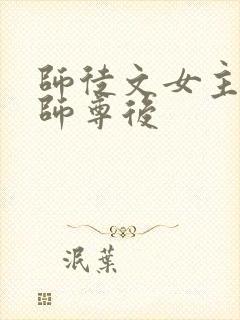 師徒文女主
師尊後
泯葉